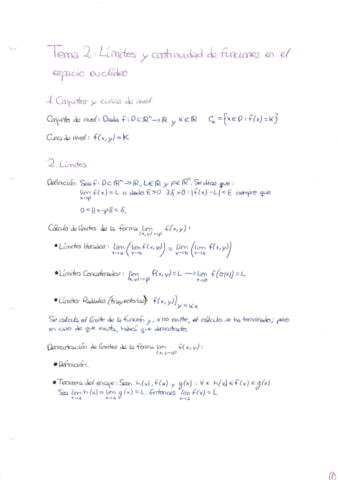 Tema 2: Límites y continuidad de funciones en el
espacio euclídeo
1. Conjuntos y curvas de nivel
Conjunto de nivel: Dada f: D⊂ℝⁿ→ℝ y K∈ℝ Cₖ = {x∈D : f(x)=K}
Curva de nivel: f(x,y)=K
2. Límites
Definición: Sea f: D⊂ℝⁿ→ℝ, L∈ℝ y p∈ℝⁿ. Se dice que:
lim x→p f(x)=L si dado ε>0 ∃δ>0 : |f(x)-L|<ε siempre que
0<||x-p||<δ.
Cálculo de límites de la forma lim (x,y)→p f(x,y):
• Límites Iterados: lim x→a (lim y→b f(x,y)) = lim y→b (lim x→a f(x,y))
• Límites Concatenados: lim (x,y)→p f(x,y)=L → lim f(σ(t))=L
• Límites Radiales (trayectorias) f(x,y)]y=kx
Se calcula el límite de la función y, si no existe, el cálculo se ha terminado; pero
en caso de que exista, habrá que demostrarlo.
Demostración de límites de la forma lim (x,y)→p f(x,y):
• Definición.
• Teorema del encaje: Sean h(x), f(x) y g(x) : ∀x h(x)≤f(x)≤g(x)
Sea lim x→a h(x)=lim x→a g(x)=L. Entonces lim x→a f(x)=L